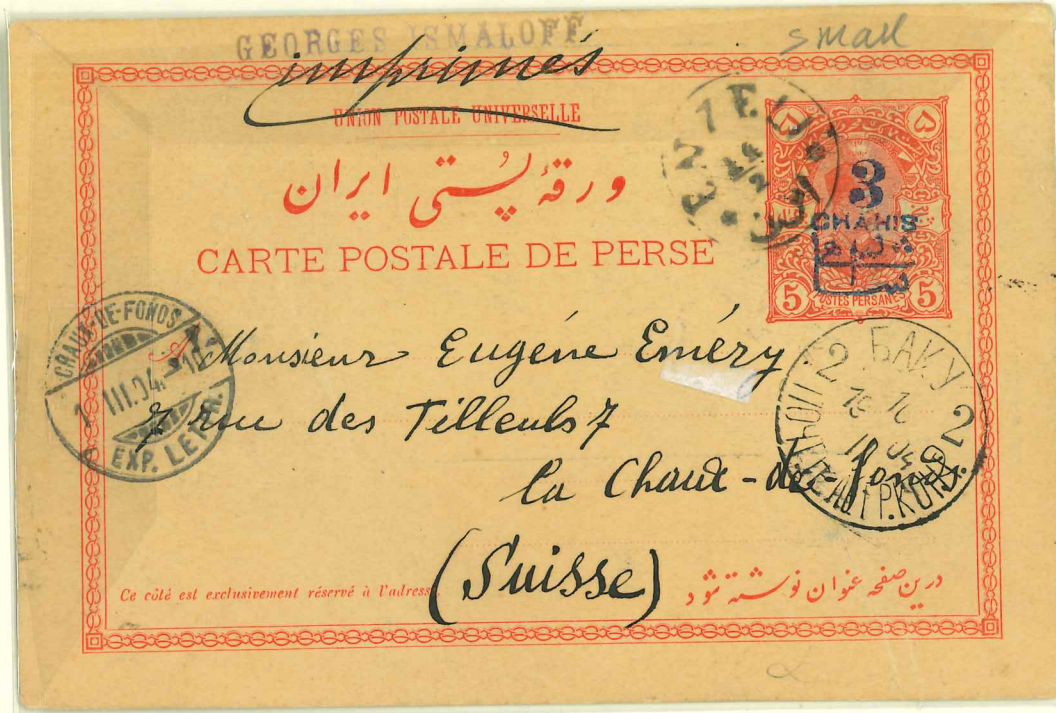 GEORGES ISMALOFF
small
imprimés
UNION POSTALE UNIVERSELLE
ورقهٔ پستی ایران
CARTE POSTALE DE PERSE
ENZELI
24
2
۵ ۵
3
CHAHIS
POSTES PERSANE
5 5
CHAUX-DE-FONDS
1. III.04.
EXP. LETTR.
БАКУ
2 2
16 16
II 04
ПОЧ. ТЕЛЕГР. КОНТ.
Monsieur Eugène Eméry
7 rue des Tilleuls 7
la Chaux-de-fonds.
(Suisse)
Ce côté est exclusivement réservé à l'adresse.
درین صفحه عنوان نوشته شود